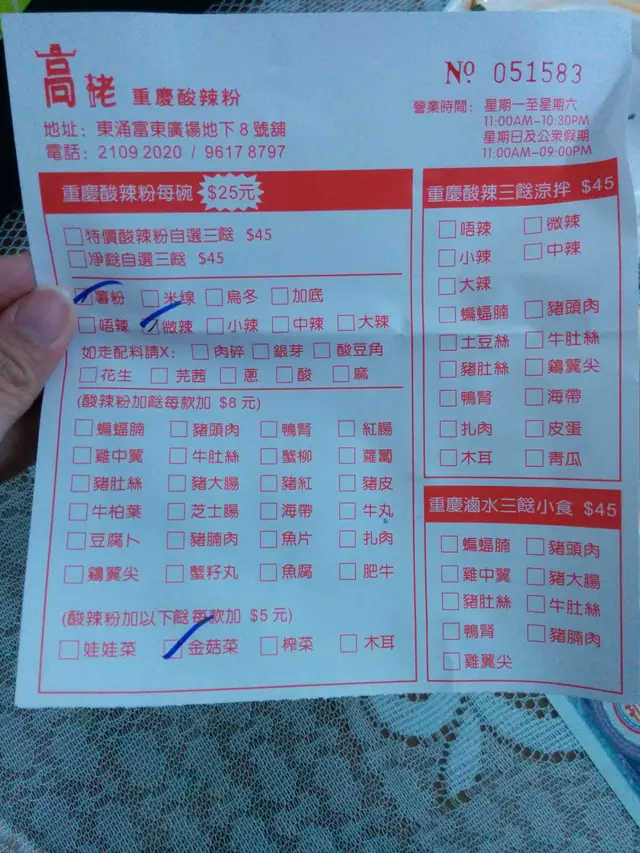 高佬 重慶酸辣粉
Nº 051583
地址: 東涌富東廣場地下8號舖
電話: 2109 2020 / 9617 8797
營業時間: 星期一至星期六
11:00AM-10:30PM
星期日及公眾假期
11:00AM-09:00PM
重慶酸辣粉每碗 $25元
特價酸辣粉自選三餸 $45
凈餸自選三餸 $45
薯粉 米線 烏冬 加底
唔辣 微辣 小辣 中辣 大辣
如走配料請X: 肉碎 銀芽 酸豆角
花生 芫茜 蔥 酸 麻
(酸辣粉加餸每款加 $8 元)
蝙蝠腩 豬頭肉 鴨腎 紅腸
雞中翼 牛肚絲 蟹柳 蘿蔔
豬肚絲 豬大腸 豬紅 豬皮
牛柏葉 芝士腸 海帶 牛丸
豆腐卜 豬腩肉 魚片 扎肉
鷄翼尖 蟹籽丸 魚腐 肥牛
(酸辣粉加以下餸每款加 $5 元)
娃娃菜 金菇菜 榨菜 木耳
重慶酸辣三餸涼拌 $45
唔辣 微辣
小辣 中辣
大辣
蝙蝠腩 豬頭肉
土豆絲 牛肚絲
豬肚絲 鷄翼尖
鴨腎 海帶
扎肉 皮蛋
木耳 青瓜
重慶滷水三餸小食 $45
蝙蝠腩 豬頭肉
雞中翼 豬大腸
豬肚絲 牛肚絲
鴨腎 豬腩肉
雞翼尖